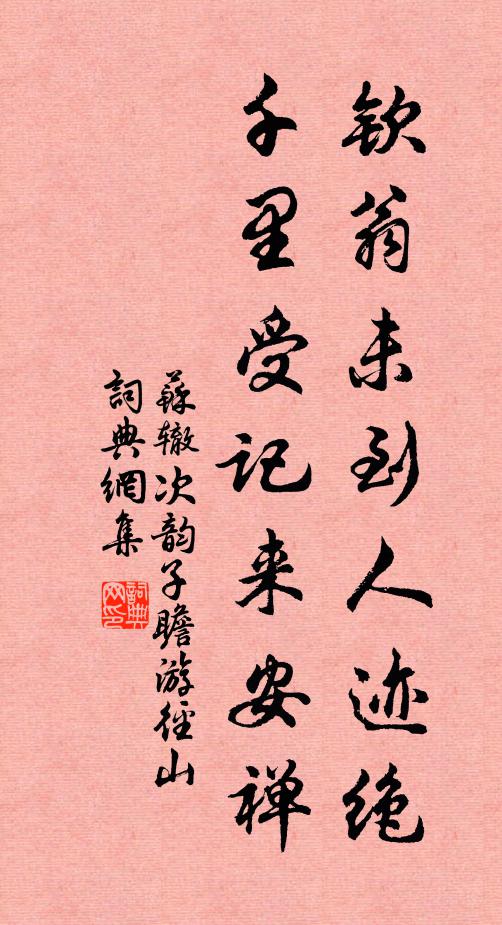 钦翁未到人迹绝
千里受记来安禅
蘇辙次韵子瞻游徑山
詞典網集
詞典网印